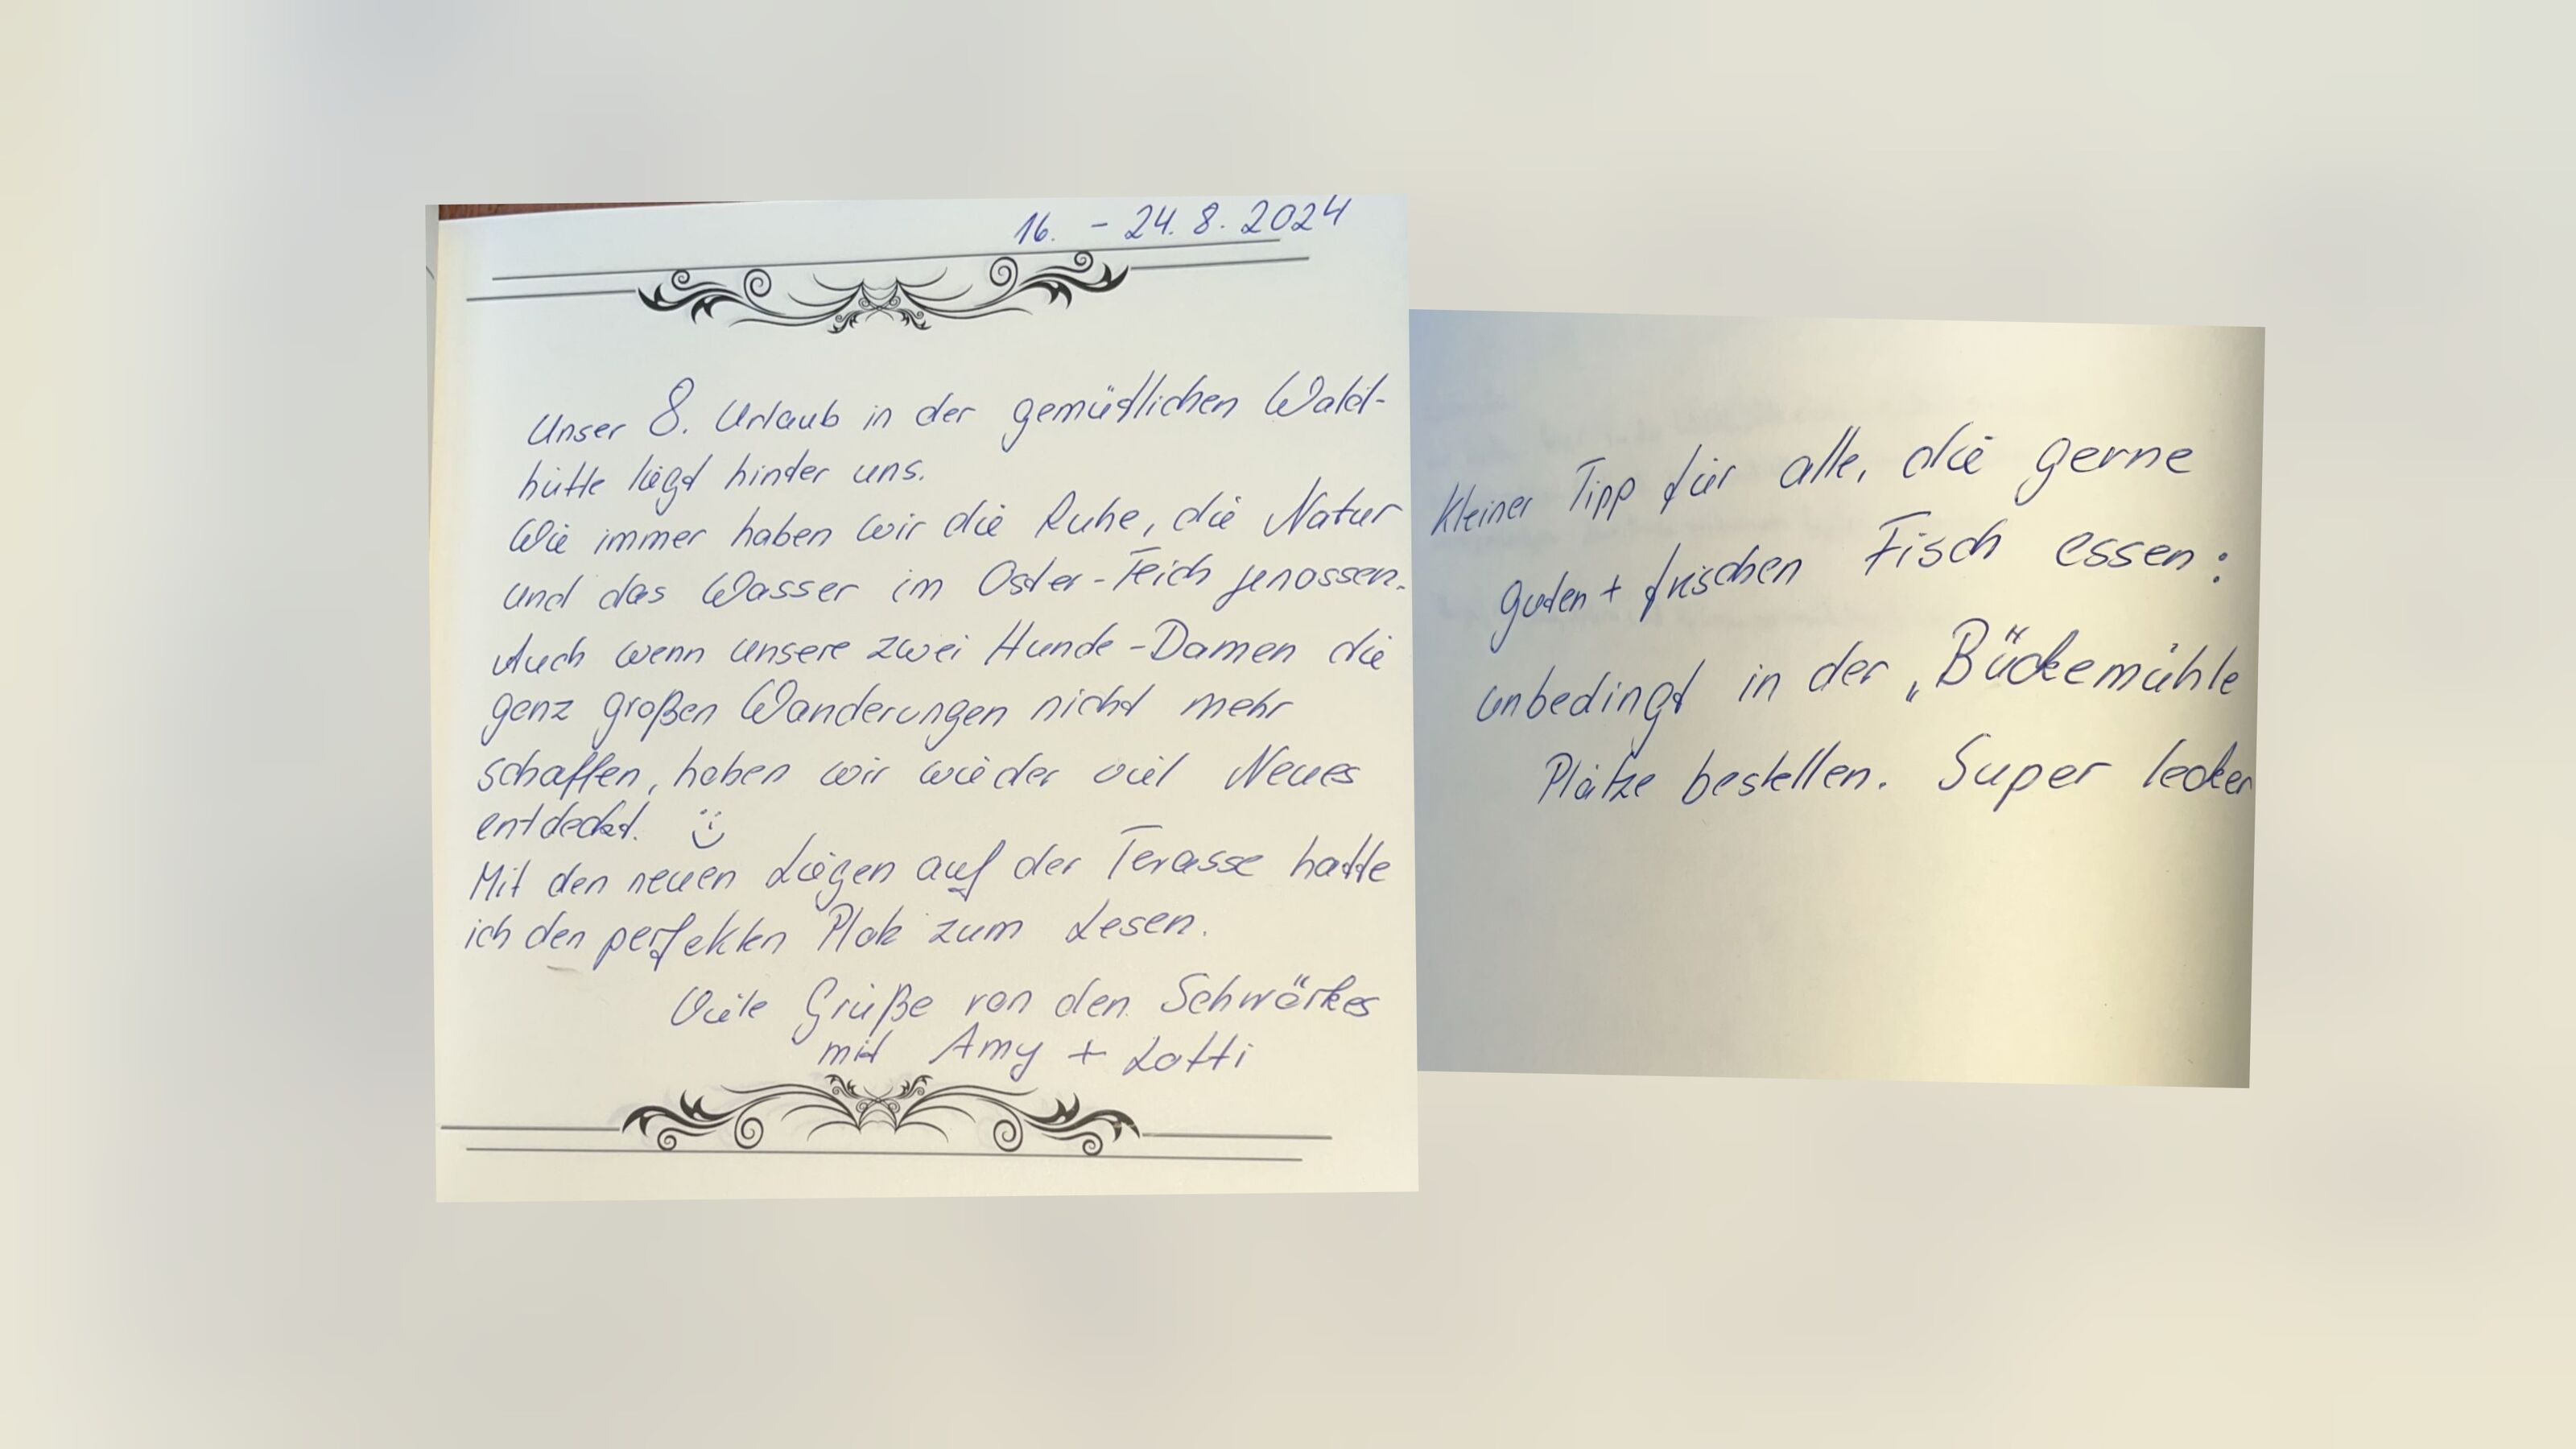 16. - 24. 8. 2024
Unser 8. Urlaub in der gemütlichen Wald-
hütte liegt hinter uns.
Wie immer haben wir die Ruhe, die Natur
und das Wasser im Oster-Teich genossen.
Auch wenn unsere zwei Hunde-Damen die
ganz großen Wanderungen nicht mehr
schaffen, haben wir wieder viel Neues
entdeckt. ☺
Mit den neuen Liegen auf der Terasse hatte
ich den perfekten Platz zum Lesen.
Viele Grüße von den Schwärkes
mit Amy + Lotti
Kleiner Tipp für alle, die gerne
guten + frischen Fisch essen:
unbedingt in der „Bückemühle
Plätze bestellen. Super lecker